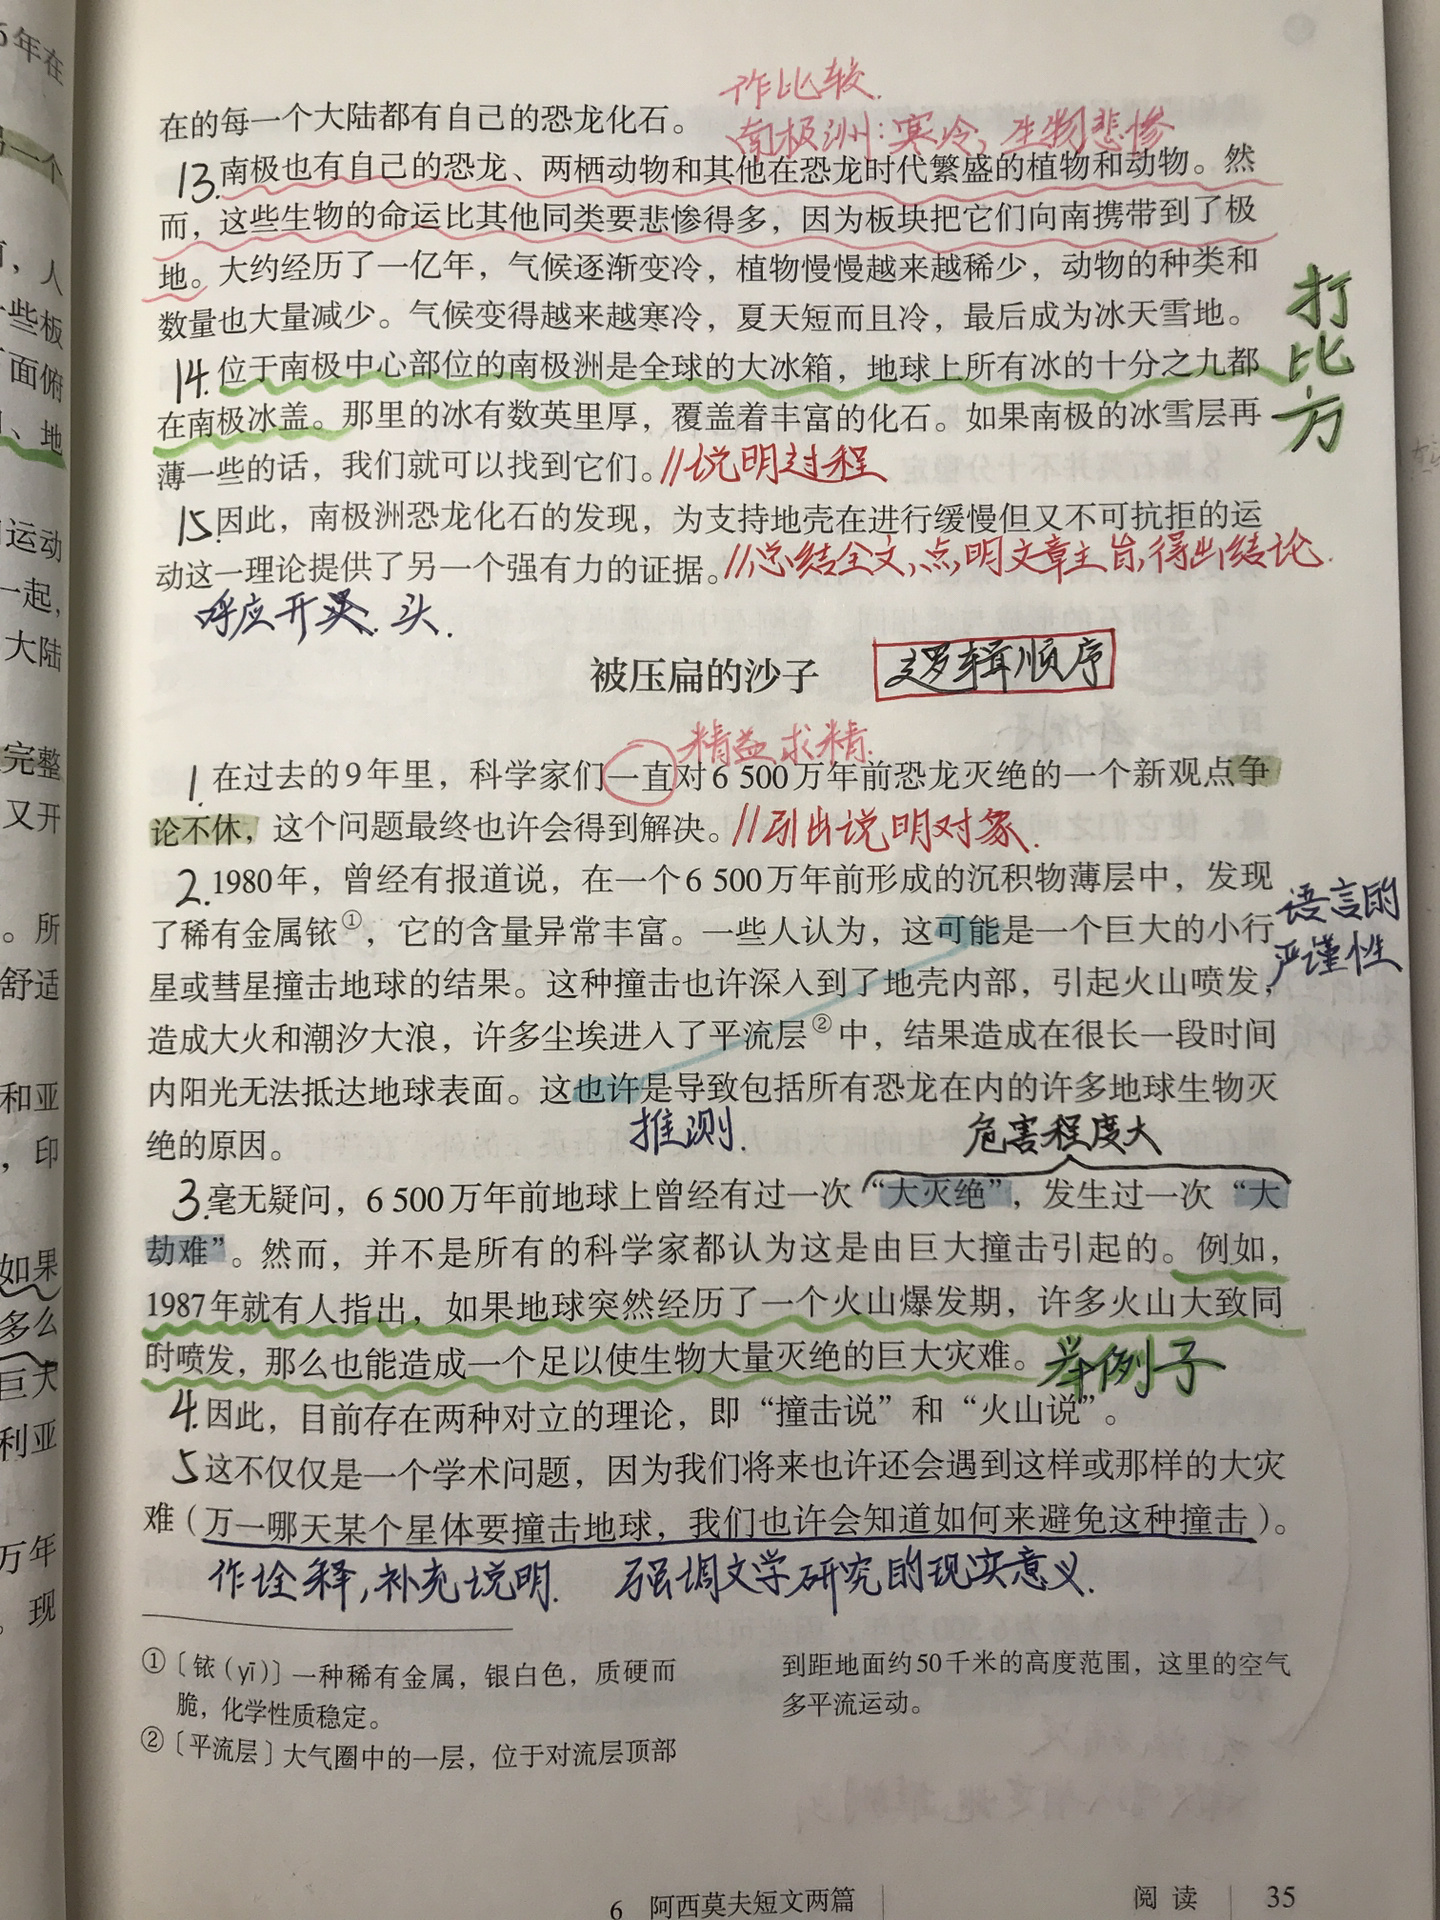 作比较.
在的每一个大陆都有自己的恐龙化石。
南极洲:寒冷,生物悲惨
13.南极也有自己的恐龙、两栖动物和其他在恐龙时代繁盛的植物和动物。然
而，这些生物的命运比其他同类要悲惨得多，因为板块把它们向南携带到了极
地。大约经历了一亿年，气候逐渐变冷，植物慢慢越来越稀少，动物的种类和
数量也大量减少。气候变得越来越寒冷，夏天短而且冷，最后成为冰天雪地。
打比方
14.位于南极中心部位的南极洲是全球的大冰箱，地球上所有冰的十分之九都
在南极冰盖。那里的冰有数英里厚，覆盖着丰富的化石。如果南极的冰雪层再
薄一些的话，我们就可以找到它们。//说明过程
15.因此，南极洲恐龙化石的发现，为支持地壳在进行缓慢但又不可抗拒的运
动这一理论提供了另一个强有力的证据。//总结全文,点明文章主旨,得出结论.
呼应开头.
被压扁的沙子 逻辑顺序
精益求精.
1.在过去的9年里，科学家们一直对6 500万年前恐龙灭绝的一个新观点争
论不休，这个问题最终也许会得到解决。//引出说明对象.
2.1980年，曾经有报道说，在一个6 500万年前形成的沉积物薄层中，发现
了稀有金属铱①，它的含量异常丰富。一些人认为，这可能是一个巨大的小行
语言的
严谨性
星或彗星撞击地球的结果。这种撞击也许深入到了地壳内部，引起火山喷发，
造成大火和潮汐大浪，许多尘埃进入了平流层②中，结果造成在很长一段时间
内阳光无法抵达地球表面。这也许是导致包括所有恐龙在内的许多地球生物灭
绝的原因。
推测.
危害程度大
3.毫无疑问，6 500万年前地球上曾经有过一次“大灭绝”，发生过一次“大
劫难”。然而，并不是所有的科学家都认为这是由巨大撞击引起的。例如，
1987年就有人指出，如果地球突然经历了一个火山爆发期，许多火山大致同
时喷发，那么也能造成一个足以使生物大量灭绝的巨大灾难。举例子
4.因此，目前存在两种对立的理论，即“撞击说”和“火山说”。
5这不仅仅是一个学术问题，因为我们将来也许还会遇到这样或那样的大灾
难（万一哪天某个星体要撞击地球，我们也许会知道如何来避免这种撞击）。
作诠释,补充说明. 强调文学研究的现实意义.
①〔铱（yī）〕一种稀有金属，银白色，质硬而
脆，化学性质稳定。
②〔平流层〕大气圈中的一层，位于对流层顶部
到距地面约50千米的高度范围，这里的空气
多平流运动。
6 阿西莫夫短文两篇
阅读 35